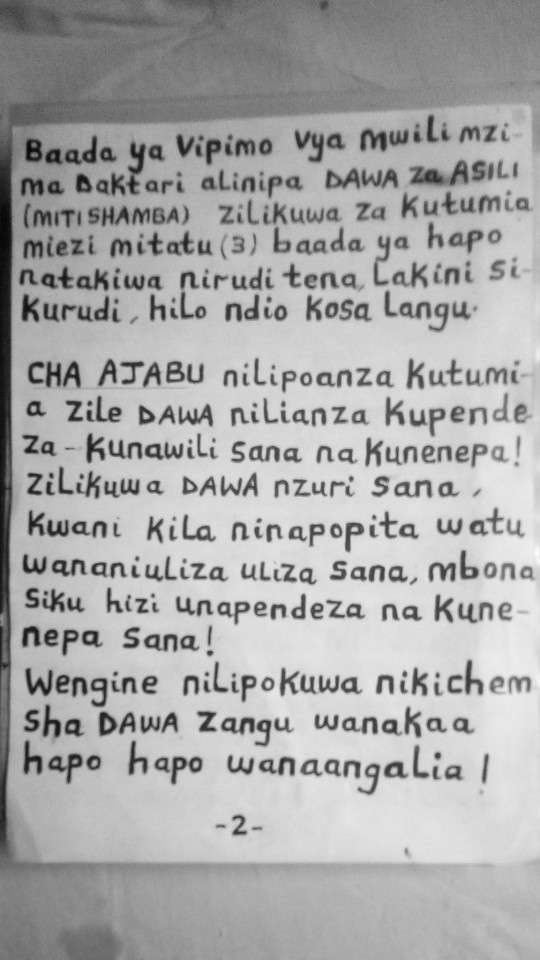 Baada ya Vipimo Vya Mwili mzi-
ma Daktari alinipa DAWA Za ASILI
(MITI SHAMBA) Zilikuwa Za Kutumia
miezi mitatu (3) baada ya hapo
natakiwa nirudi tena, Lakini Si-
Kurudi, hilo ndio Kosa Langu.
CHA AJABU niLipoanza Kutumi-
a Zile DAWA nilianza Kupende
Za - Kunawili Sana na Kunenepa!
ZiLiKuwa DAWA nzuri Sana,
Kwani Kila ninapopita watu
wananiuliza uliza Sana, mbona
Siku hizi unapendeza na Kune-
nepa Sana!
Wengine niLipoKuwa nikichem
Sha DAWA Zangu wanaKaa
hapo hapo wanaangaLia!
-2-